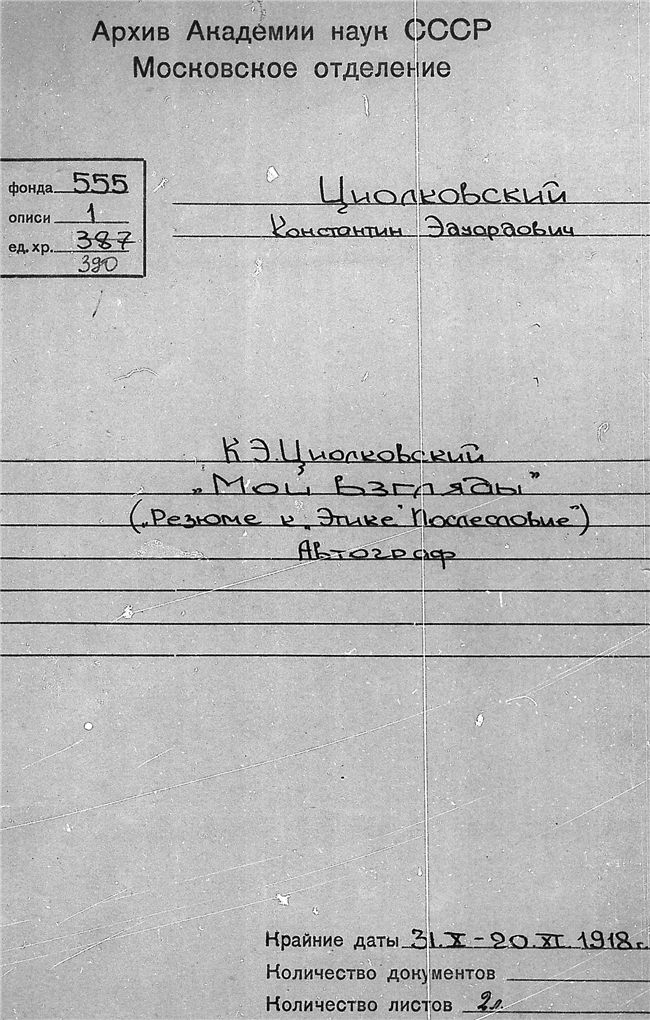 Архив Академии наук СССР
Московское отделение
фонда 555
описи 1
ед. хр. 387
390
Циолковский
Константин Эдуардович
К.Э.Циолковский
„Мои взгляды”
(„Резюме к „Этике” Послесловие”)
Автограф
Крайние даты 31.X-20.XI.1918г.
Количество документов
Количество листов 2л.